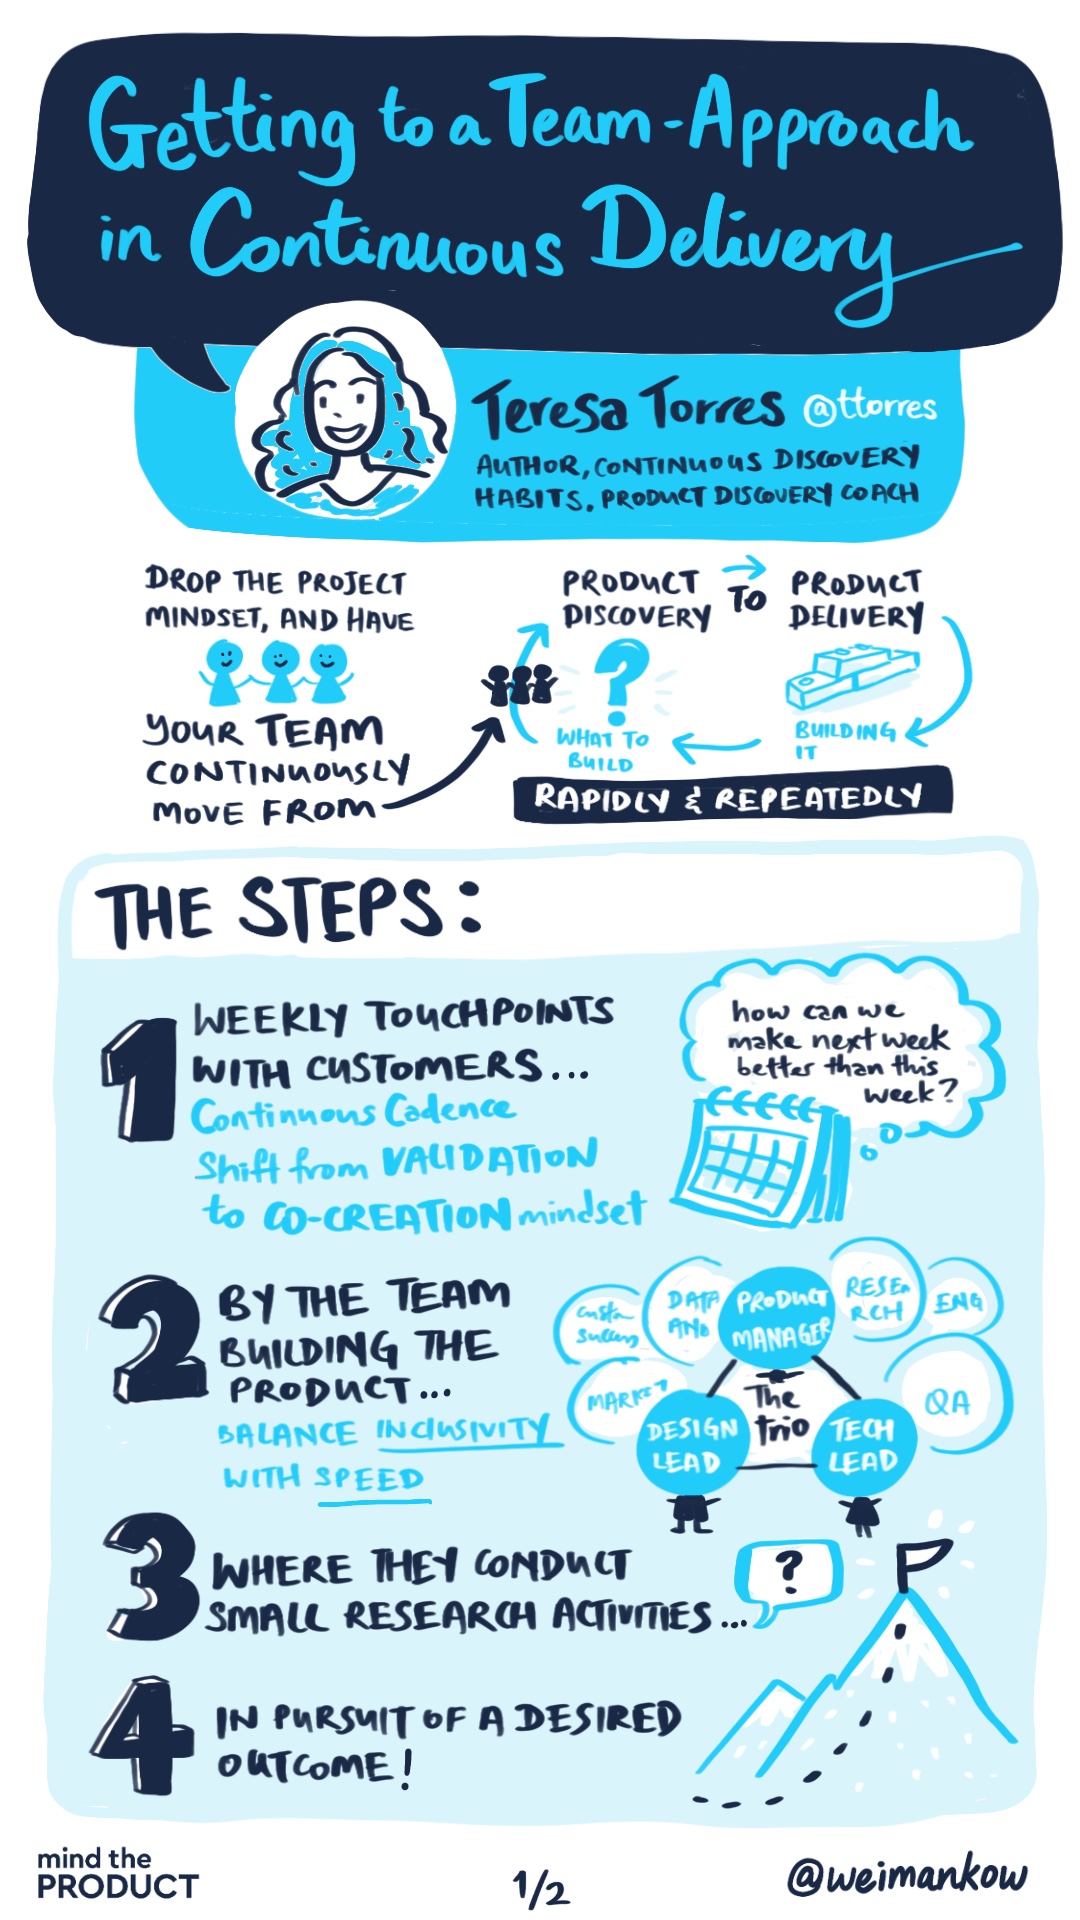 Getting to a Team-Approach
in Continuous Delivery
Teresa Torres @ttorres
AUTHOR, CONTINUOUS DISCOVERY
HABITS, PRODUCT DISCOVERY COACH
DROP THE PROJECT
MINDSET, AND HAVE
YOUR TEAM
CONTINUOUSLY
MOVE FROM
PRODUCT
DISCOVERY
TO
PRODUCT
DELIVERY
?
WHAT TO
BUILD
BUILDING
IT
RAPIDLY & REPEATEDLY
THE STEPS:
1
WEEKLY TOUCHPOINTS
WITH CUSTOMERS...
Continuous Cadence
Shift from VALIDATION
to CO-CREATION mindset
how can we
make next week
better than this
week?
2
BY THE TEAM
BUILDING THE
PRODUCT...
BALANCE INCLUSIVITY
WITH SPEED
DATA
PRODUCT
MANAGER
RESEA
RCH
ENG
MARKET
DESIGN
LEAD
The
trio
TECH
LEAD
QA
3
WHERE THEY CONDUCT
SMALL RESEARCH ACTIVITIES...
?
4
IN PURSUIT OF A DESIRED
OUTCOME!
mind the
PRODUCT
1/2
@weimankow